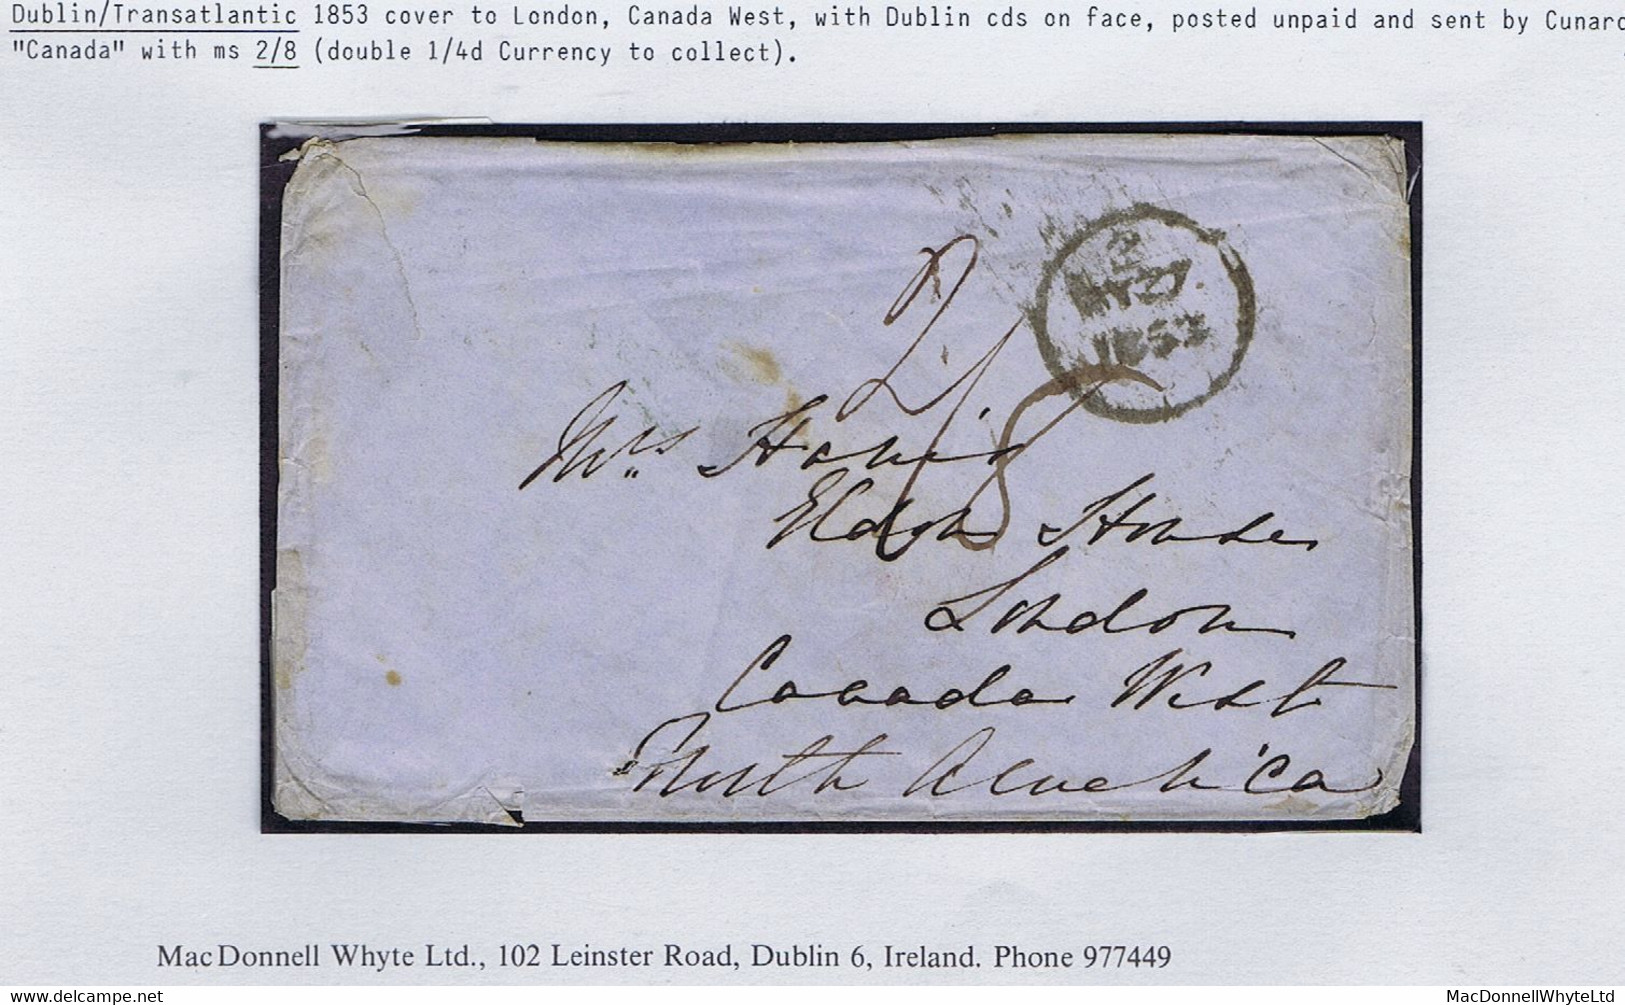 Dublin/Transatlantic 1853 cover to London, Canada West, with Dublin cds on face, posted unpaid and sent by Cunard
"Canada" with ms 2/8 (double 1/4d Currency to collect).
2
MY 27
1853
2/8
Mrs
House
London
Canada West
North America
MacDonnell Whyte Ltd., 102 Leinster Road, Dublin 6, Ireland. Phone 977449
delcampe.net
MacDonnellWhyteLtd